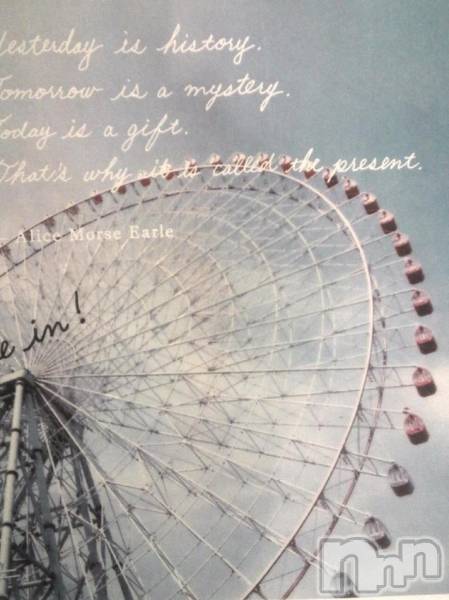 Yesterday is history.
Tomorrow is a mystery.
Today is a gift.
That's why it is called the present.
Alice Morse Earle
in!
nnn